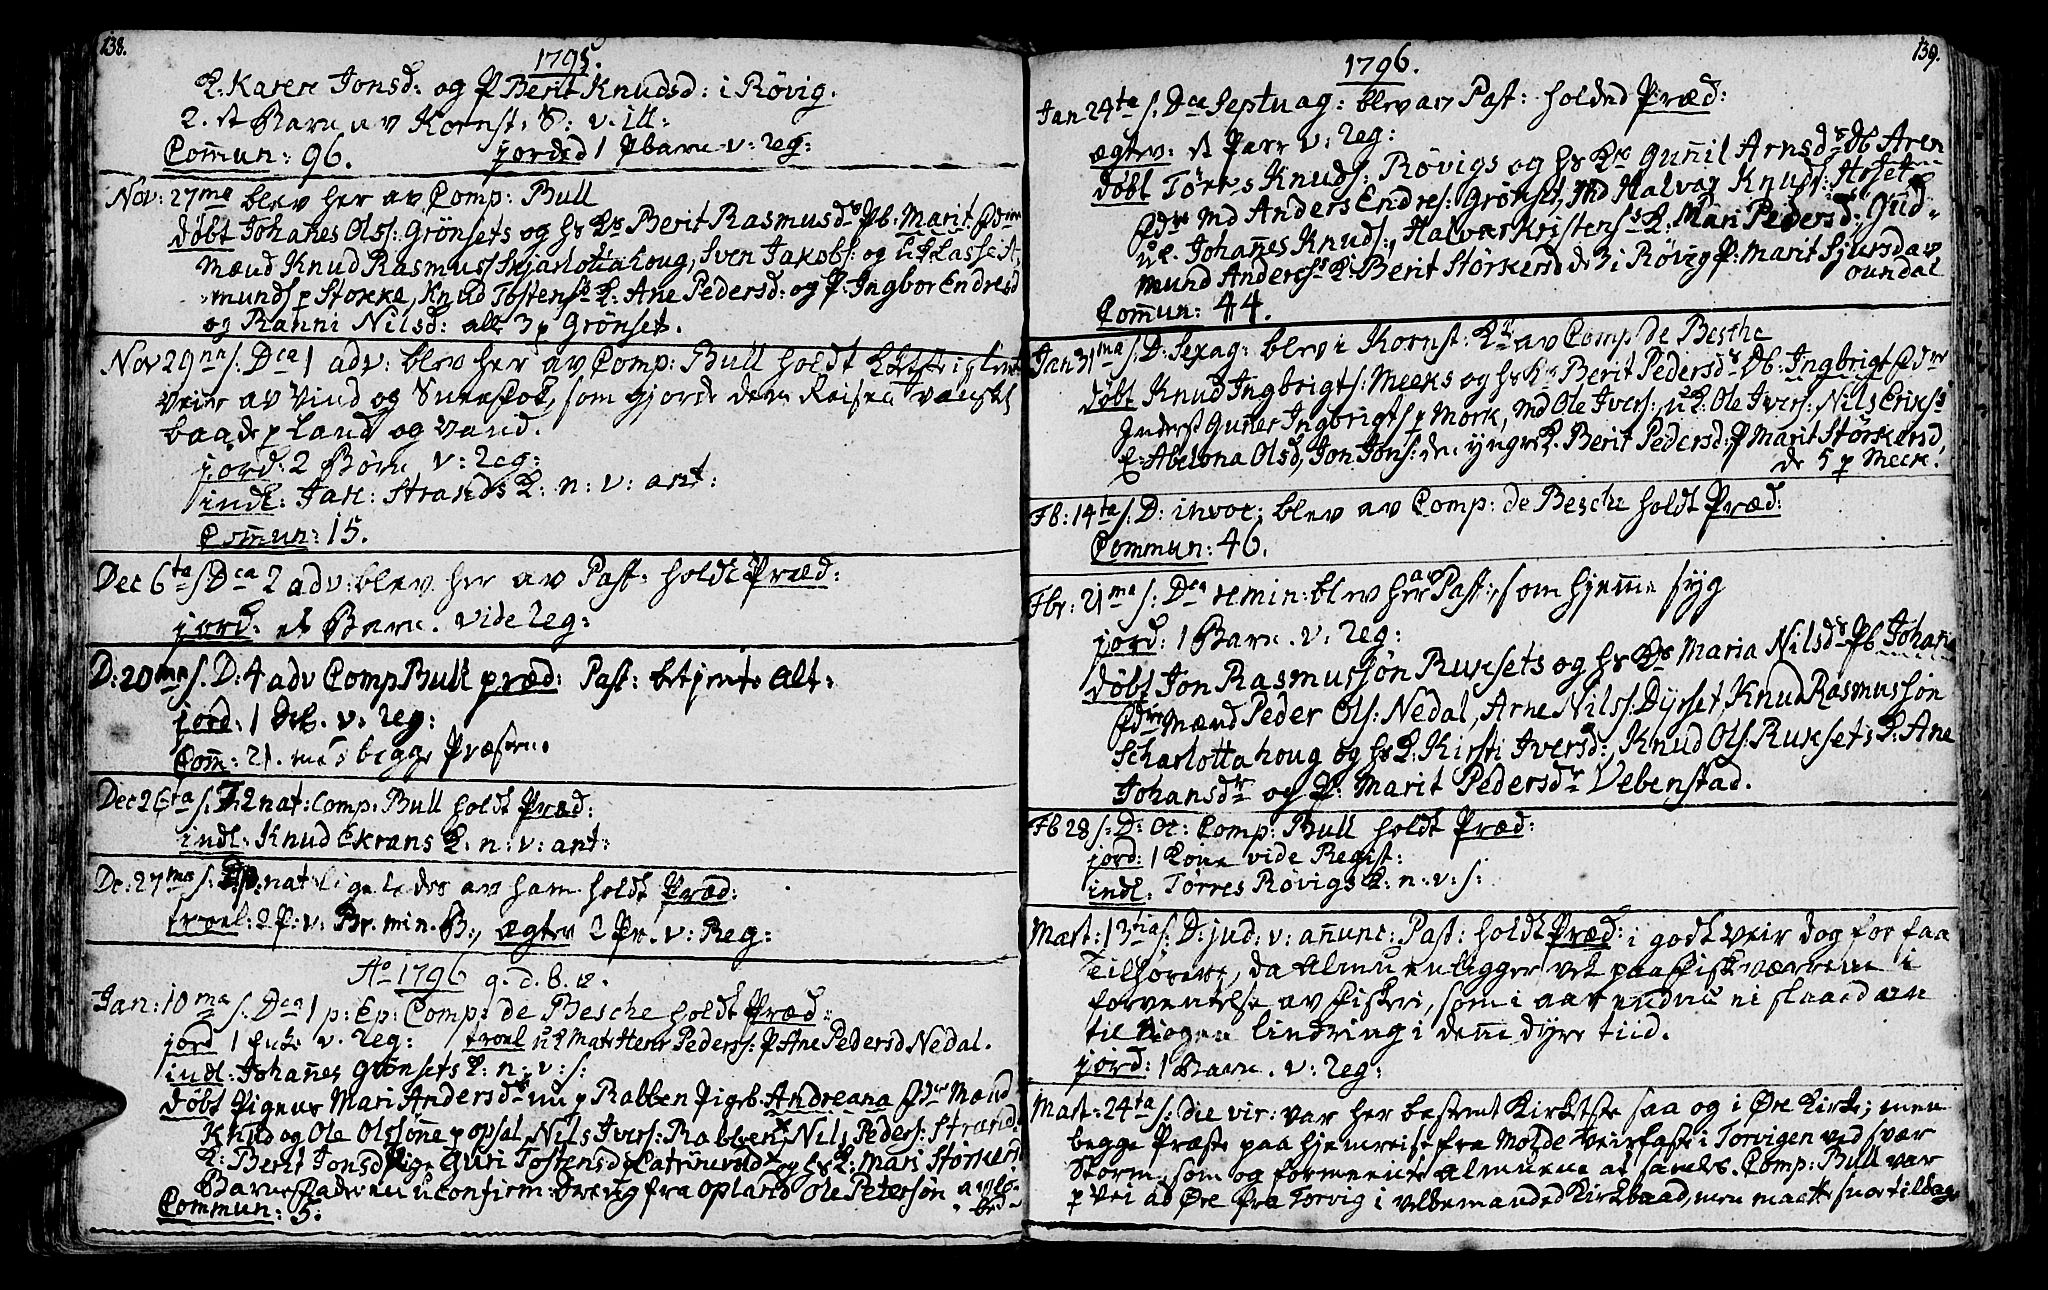 138.
1795.
K. Karen Jonsd: og P Berit Knudsd: i Røvig.
2. et Barn av Kornst. S: v. ill:
Commun: 96. jorded 1 Pbarn v: Reg:
Nov: 27ma blev her av Comp: Bull
døbt Johanes Ols: Grønsets og hs Ks Berit Rasmusds Pb: Marit
Mænd Knud Rasmuss Skjarlottahoug, Sven Jakobs: og
munds p Stokke, Knud Tostens K: Ane Pedersd: og P: Ingbor Endresd
og Ranni Nilsd: alle 3 p Grønset.
Nov 29na s: Dca 1 adv: blev her av Comp: Bull holdt
Veir av Vind og Sneefok, som gjorde den Reisen vanskl
baade p Land og Vand.
jord: 2 Børn v: Reg:
indl: Jan: Strands K: n: v: ant:
Commun: 15.
Dec 6ta s Dca 2 adv: blev her av Past: holdt Præd:
jord: et Barn. vide Reg:
D: 20ma s. D: 4 adv Comp Bull præd: Past: betjente Alt:
jord: 1 v: Reg:
Com: 21. begge Præstene.
Dec 26ta s: F: 2 nat: Comp: Bull holdt Præd:
indl: Knud Ekrans K: n: v: ant:
De: 27ma s: nat: ligeledes av ham holdt Præd:
troel: 2 P: v: Br. min. B:, ægtev 2 Pr. v: Reg:
Ao 1796 g. d. B. 12.
Jan: 10ma s: Dca 1 p: Ep: Comp: de Besche holdt Præd:
jord 1 Enke v. Reg: troel uK Mats Henr Peders: P Ane Pedersd Nedal.
indl: Johañes Grønsets K: n: v: s:
døbt Pigens Mari Andersds nu p Rabben Pigeb: Andreana Mænd
Knud og Ole Olssøñe p Opsal, Nils Ivers: Rabben, Nils Peders: Strand
K: Berit Jonsd Pige Guri Tostensd og hs K: Mari Størkers
Barnefaderen uconfirm: Dreng fra Opland Ole Petersøn
Commun: 5:
139.
1796.
Jan 24ta s: Dca Septuag: blev av Past: holded Præd:
ægtev: et Parr v: Reg:
døbt Tørres Knuds: Røvigs og hs Ks Guñil Arnsds Db Aren
Md Anders Endres: Grønset, Md Halvar Knuds: Aset
uK. Johañes Knuds:, Halvar Kristens K: Mari Pedersd: Gud-
mund Anderss K: Berit Størkersd de 3 i Røvig P: Marit Sjursd av
Oundal
Commun: 44.
Jan 31ma s: D: Sexag: blev i Kornst: K av Comp de Besche
døbt Knud Ingbrigts: Meeks og hs Ks Berit Pedersds Db: Ingbrigt
Inderst Guner Ingbrigts p Mork, Md Ole Ivers: uK: Ole Ivers: Nils Eriks
K: Abelona Olsd, Jon Jons: den yngre K. Berit Pedersd: P Marit Størkersd
de 5 p Meek.
Fb: 14ta s: D: invoc: blev av Comp: de Besche holdt Præd:
Commun: 46.
Fbr: 21ma s: Dca remin: blev her av Past:, som hjemme syg
jord: 1 Barn. v: Reg:
døbt Jon Rasmussøn Ruksets og hs Ks Maria Nilsds Pb Johana
Mænd Peder Ols: Nedal, Arne Nilss: Dyrset, Knud Rasmussøn
Scharlottahoug og hs K: Kirsti Iversd:, Knud Ols: Ruksets K: Ane
Johansdr og P: Marit Pedersdr Vebenstad.
Fb 28 s: D: Oc: Comp: Bull holdt Præd:
jord: 1 Kone vide Regist:
indl: Tørres Røvigs K: n: v: s:
Mart: 13tia s: D: jud: v: añunc: Past: holdt Præd: i godt veir dog for faa
Tilhørere, da Almuen ligger vek paa Fiskeværrene i
forventelse av Fiskeri, som i aar endnu ei slaaed an
til Nogen lindring i deñe dyre tiid.
jord: 1 Barn. v: Reg:
Mart: 24ta s: die vir: var her bestemt Kirktste saa og i Øre Kirke; men
begge Præste paa hjemreise fra Molde Veirfaste i Torvigen ved svær
Storm, som og formeente Almuene at samles. Comp: Bull var
p vei ad Øre fra Torvig i velbemanded Kirkbaad, men maatte snoe tilbage